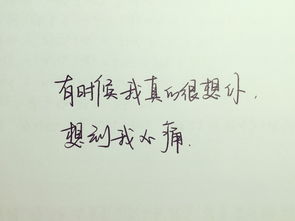 有时候我真的很想你，
想到我心痛.